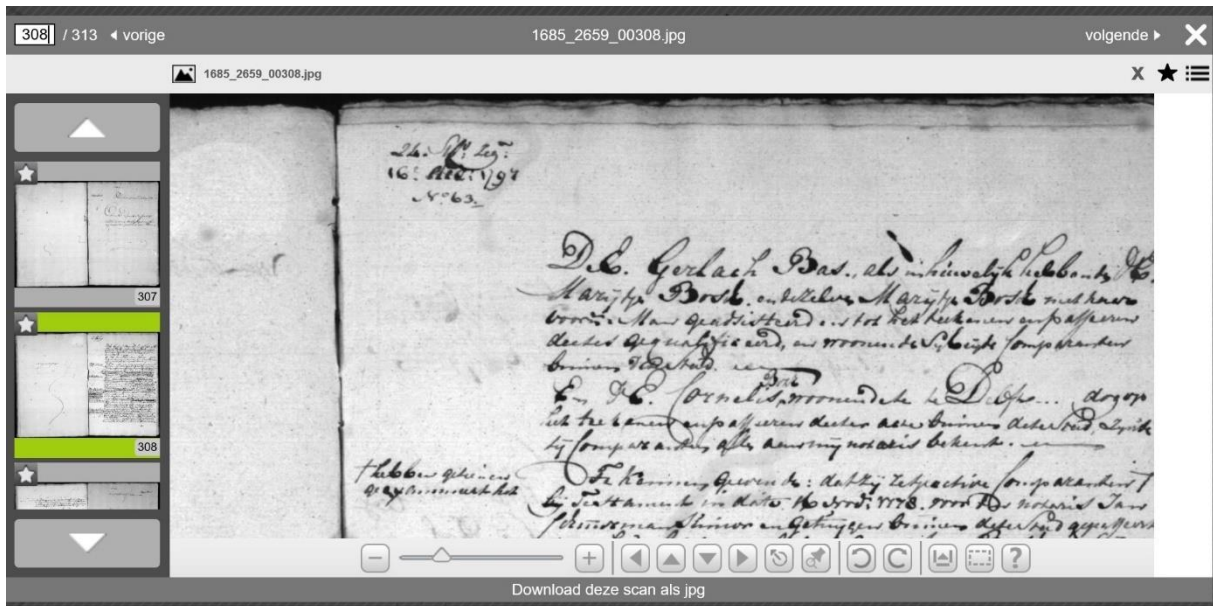 308 / 313 vorige 1685_2659_00308.jpg volgende
1685_2659_00308.jpg X
307
308
24: St: Zeg:
16: Dec: 1797
N:o 63.
D.E. Gerlach Bas, als in huwelijk hebbende D'E.
Marijtje Bosch, en dezelve Marijtje Bosch met haar
voorn: Man geadsisteerd en tot het teekenen en passeeren
deeses gequalificeerd, en woonende Sij beijde Comparanten
binnen deze stad.
En D'E. Cornelis Bas woonende te De dog op
het teekenen en passeeren deeses alhier binnen deze stad, Zijnde
Zij Comparanten alle aan mij notaris bekent.
† hebben gezien en
geexamineert het
Te kennen gevende: dat Zij respective Comparanten †
bij Testamente in dato 16 Novr: 1778. voor den notaris Jan
en Getuijgen binnen deze stad gepasseert
Download deze scan als jpg